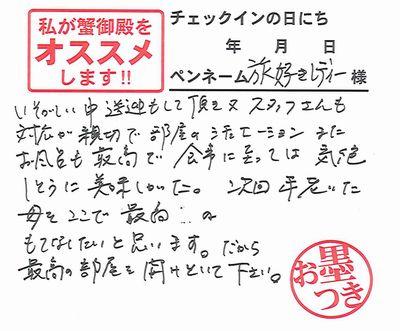 私が蟹御殿を
オススメ
します!!
チェックインの日にち
年 月 日
ペンネーム 旅好きレディー 様
いそがしい中 送迎もして頂き又 スタッフさんも
対応が親切で部屋のシチュエーション また
お風呂も最高で 食事に至っては 気絶
しそうに美味しかった。 次回 平尾いた
母をここで最高 の
もてなしたいと思います。だから
最高の部屋を開けといて下さい。
お墨
つき